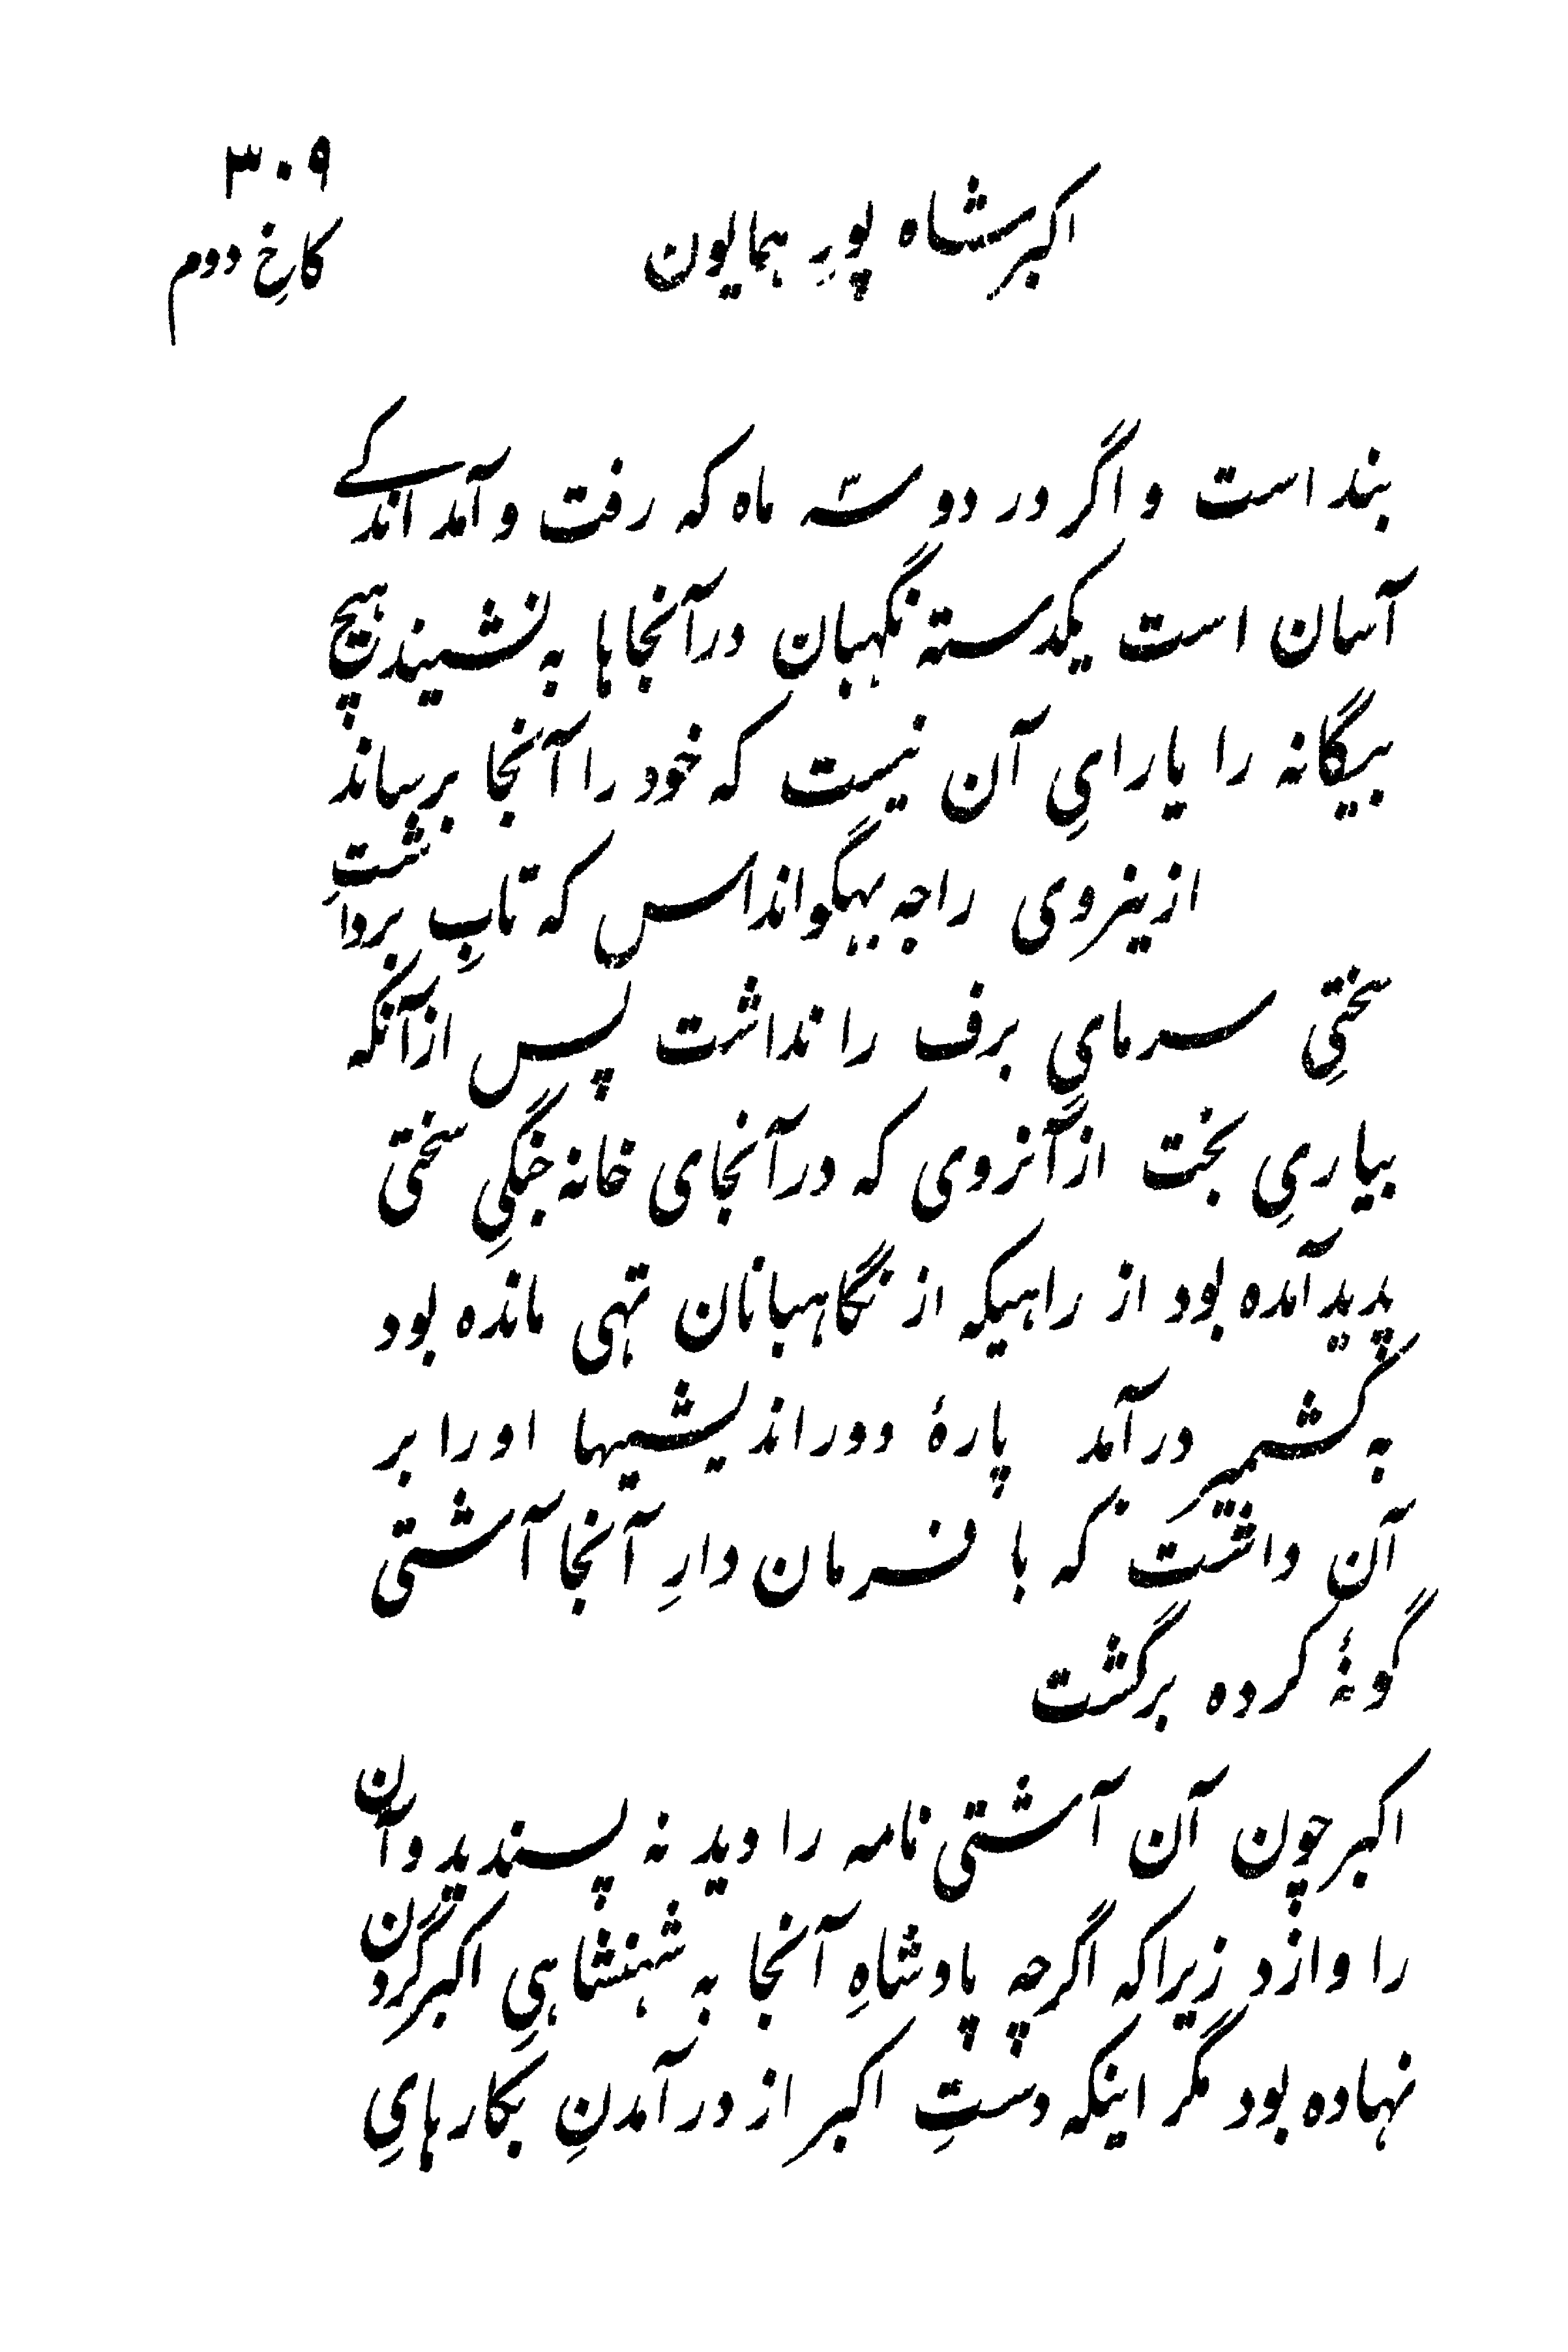 ۳۰۹
اکبرشاه پورِ همایون
کاخِ دوم
بند است و اگر در دو سّه ماه که رفت و آمد اندکے
آسان است یکدسته نگهبان درآنجاها به نشیند هیچ
بیگانه را یارایِ آن نیست که خود را آنجا برساند
ازینروی راجه بهگوانداس که تابِ برداشتِ
سختیِ سرمایِ برف را نداشت پس ازآنکه
بیاریِ بخت ازآنروی که درآنجای خانه جنگیِ سختی
پدید آمده بود از راهیکه از نگاهبانان تهی مانده بود
به کشمیر درآمد پارۀ دوراندیشیها او را بر
آن داشت که با فرمان دارِ آنجا آشتی
گونۀ کرده برگشت
اکبر چون آن آشتی نامه را دید نه پسندید و آن
را وازد زیراکه اگرچه پادشاهِ آنجا به شهنشاهیِ اکبر گردن
نهاده بود مگر اینکه دستِ اکبر از درآمدنِ بکارهایِ